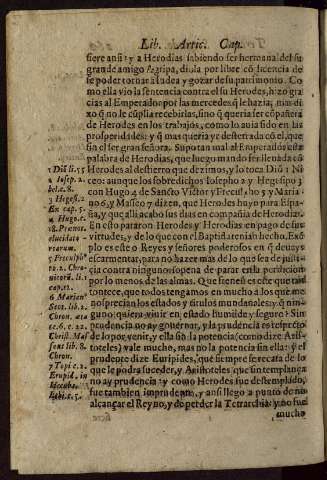 Lib. Artic. Cap.
fiere ansi: y a Herodias sabiendo ser hermana del su
grande amigo Agripa, diola por libre cō licencia de
le poder tornar a Iudea y gozar de su patrimonio. Co
mo ella vio la sentencia contra el su Herodes, hizo gra
cias al Emperador por las mercedes q̃ le hazia, mas di
xo q̃ no le cūplia recebirlas, sino q̃ queria ser cōpañera
de Herodes en los trabajos, como lo auia sido en las
prosperidades: y q̃ mas queria yr desterrada cō el, que
sin el ser gran señora. Supo tan mal al Emperador esta
palabra de Herodias, que luego mando ser llenada cō
Herodes al destierro que dezimos, y lo toca Diō 1 Ni
ceo: aunque los sobredichos Iosepho 2 y Hegesipo 3
con Hugo 4 de Sancto Victor
no 6, y Masseo 7 dizen, que Herodes huyo para Espa
ña, y que alli acabo sus dias en compañia de Herodias.
En esto pararon Herodes y Herodias en pago de sus
virtudes, y de lo que con el Baptista auian hecho. Exē
plo es este o Reyes y señores poderosos en q̃ deuays
escarmentar, para no hazer mas de lo que sea de justi-
cia contra ninguno sopena de parar en la perdicion
por lo menos de las almas. Que fines es este que tan
tontece, que todos tengamos en mucho a los que me
nosprecian los estados y titulos mundanales: y q̃ nin-
guno quiera viuir en estado humilde y seguro? Sin
prudencia no ay gouernar, y la prudencia es respecto
de lo por venir, y ella sin la potencia (como dize Aris
toteles) vale mucho, mas no la potencia sin ella: y el
prudente dize Euripides, que siempre se recata de lo
que le podra suceder, y Aristoteles que sin templança
no ay prudencia: y como Herodes fue destemplado,
fue tambien imprudente, y ansi llego a punto de no
alcançar el Reyno, y de perder la Tetrarchia: y no fue
mucho
1 Diō li. 55
2 Iosep. 2.
bel. c. 8.
3 Heges. 2
Ex cap. 5.
4 Hugo. c.
elucidato
5
to. 2. Chro-
li. 2
cap. 12.
6 Marian9
Scot. lib. 2.
Chron. æta
te. 6. c. 22.
Christ. Mas
seus lib. 8.
Chron.
7 Topi. c. 2
Eurip. in
Hecuba.
Ethi. c. 5.